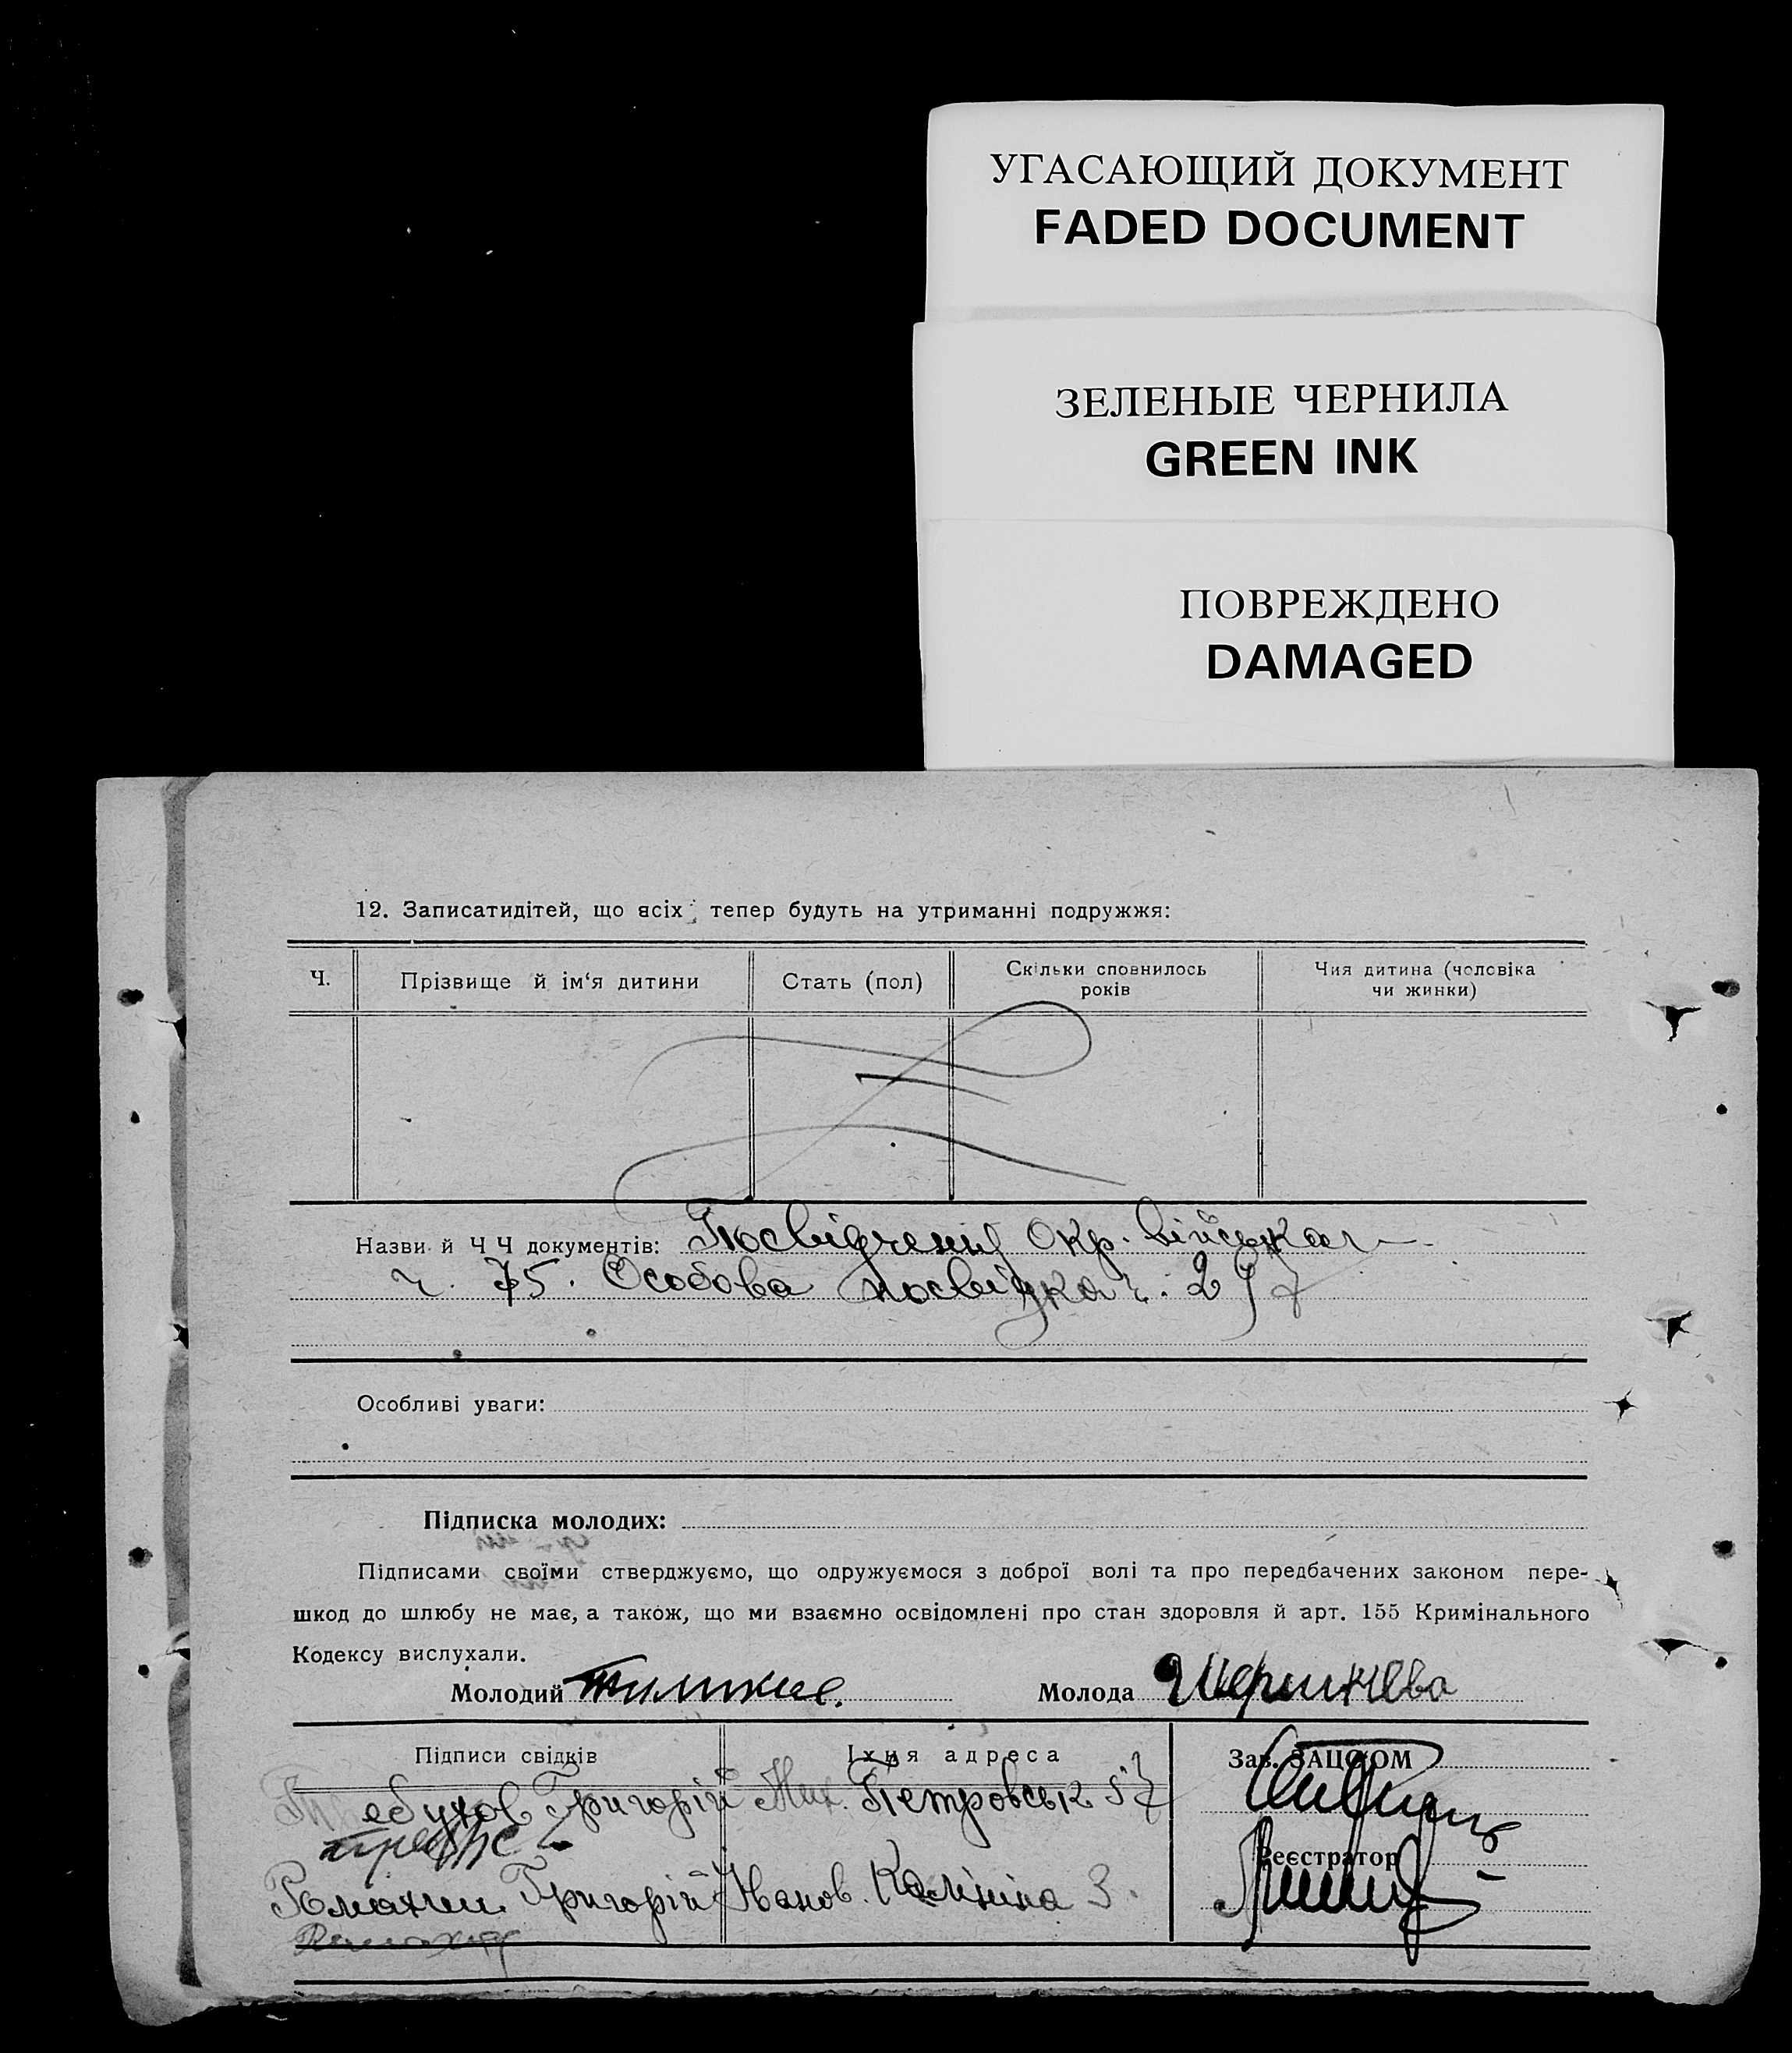 УГАСАЮЩИЙ ДОКУМЕНТ
FADED DOCUMENT
ЗЕЛЕНЫЕ ЧЕРНИЛА
GREEN INK
ПОВРЕЖДЕНО
DAMAGED
12. Записатидітей, що всіх тепер будуть на утриманні подружжя:
Ч.
Прізвище й ім‘я дитини
Стать (пол)
Скільки сповнилось
років
Чия дитина (чоловіка
чи жинки)
Назви й Ч Ч документів: Посвідчення Окр. військкал
ч. 75. Особова посвідка ч. 297
Особливі уваги:
Підписка молодих:
Підписами своїми стверджуємо, що одружуємося з доброї волі та про передбачених законом пере-
шкод до шлюбу не має, а також, що ми взаємно освідомлені про стан здоровля й арт. 155 Кримінального
Кодексу вислухали.
Молодий
Молода
Підписи свідків
Їхня адреса
Зав. ЗАЦС'ОМ
Григорій Мих. Петровськ 57
Реєстратор
Григорій Иванов. Калініна 3.